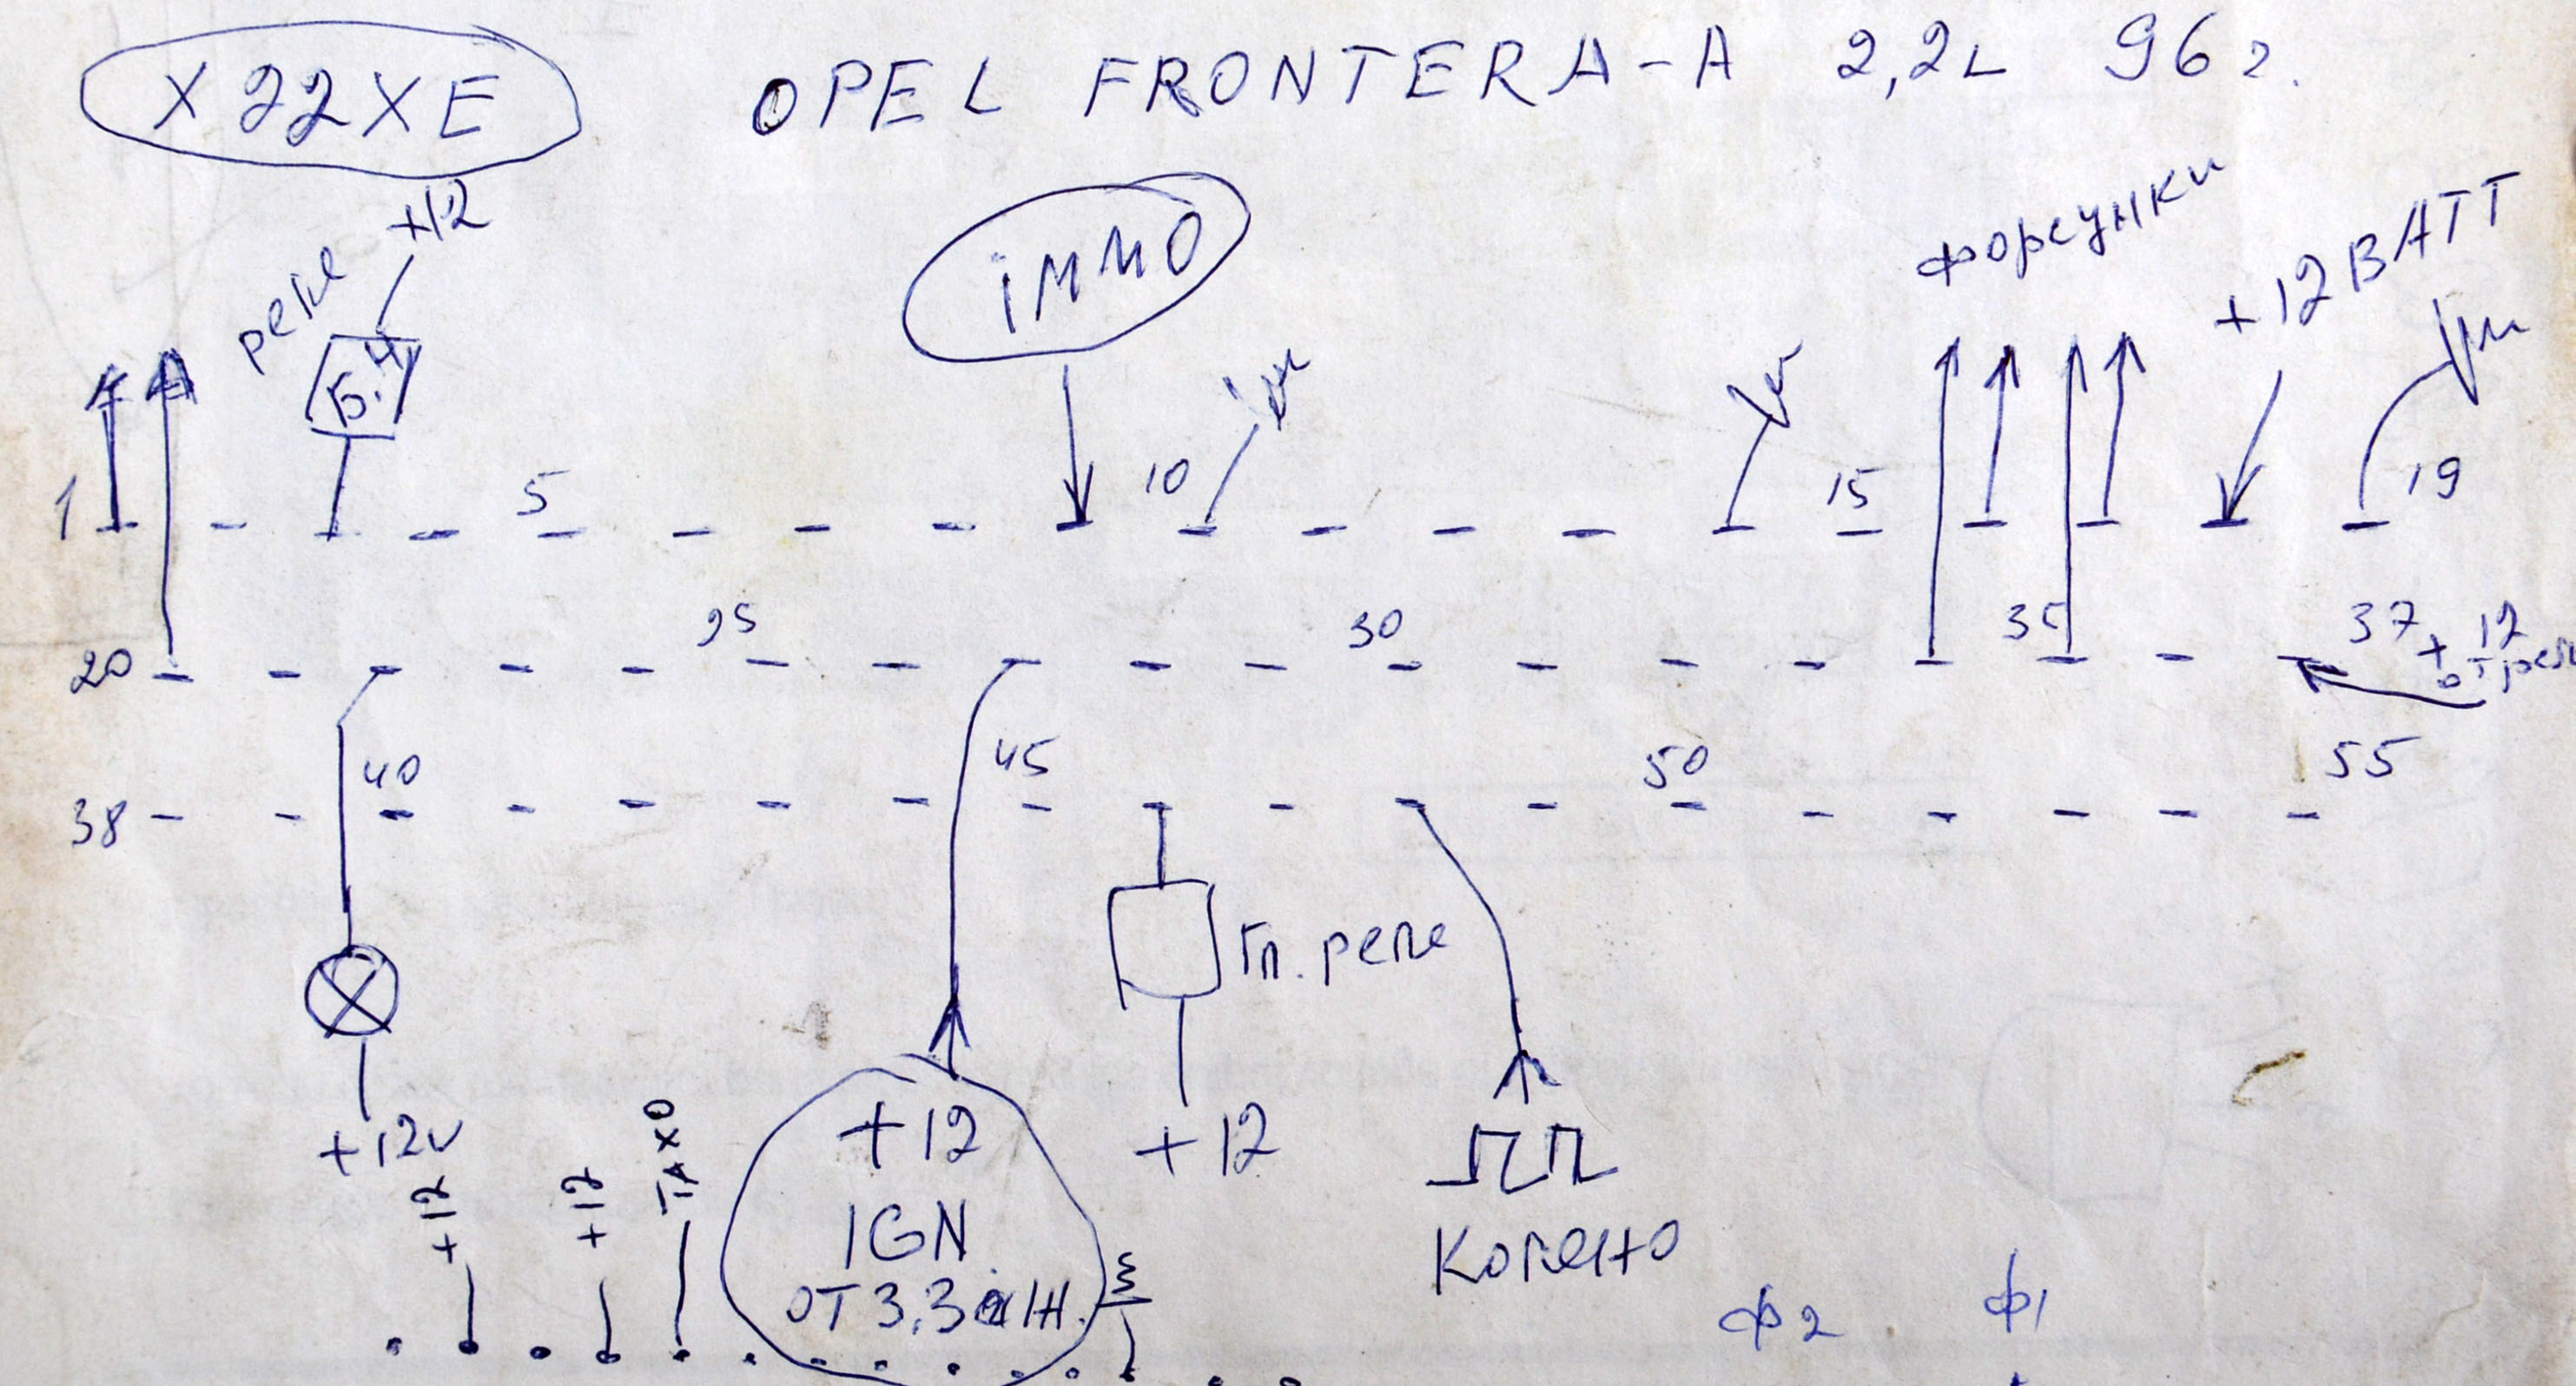 X22XE OPEL FRONTERA-A 2,2L 96г.
+12
реле
Б.Н
iMMO
форсунки
+12 BATT
1 5 10 15 19
20 25 30 35 37 +12 от реле
38 40 45 50 55
Гл. реле
+12V
+12
+12
TAXO
+12
IGN
ОТ З.З
+12
Колено
ф2 ф1